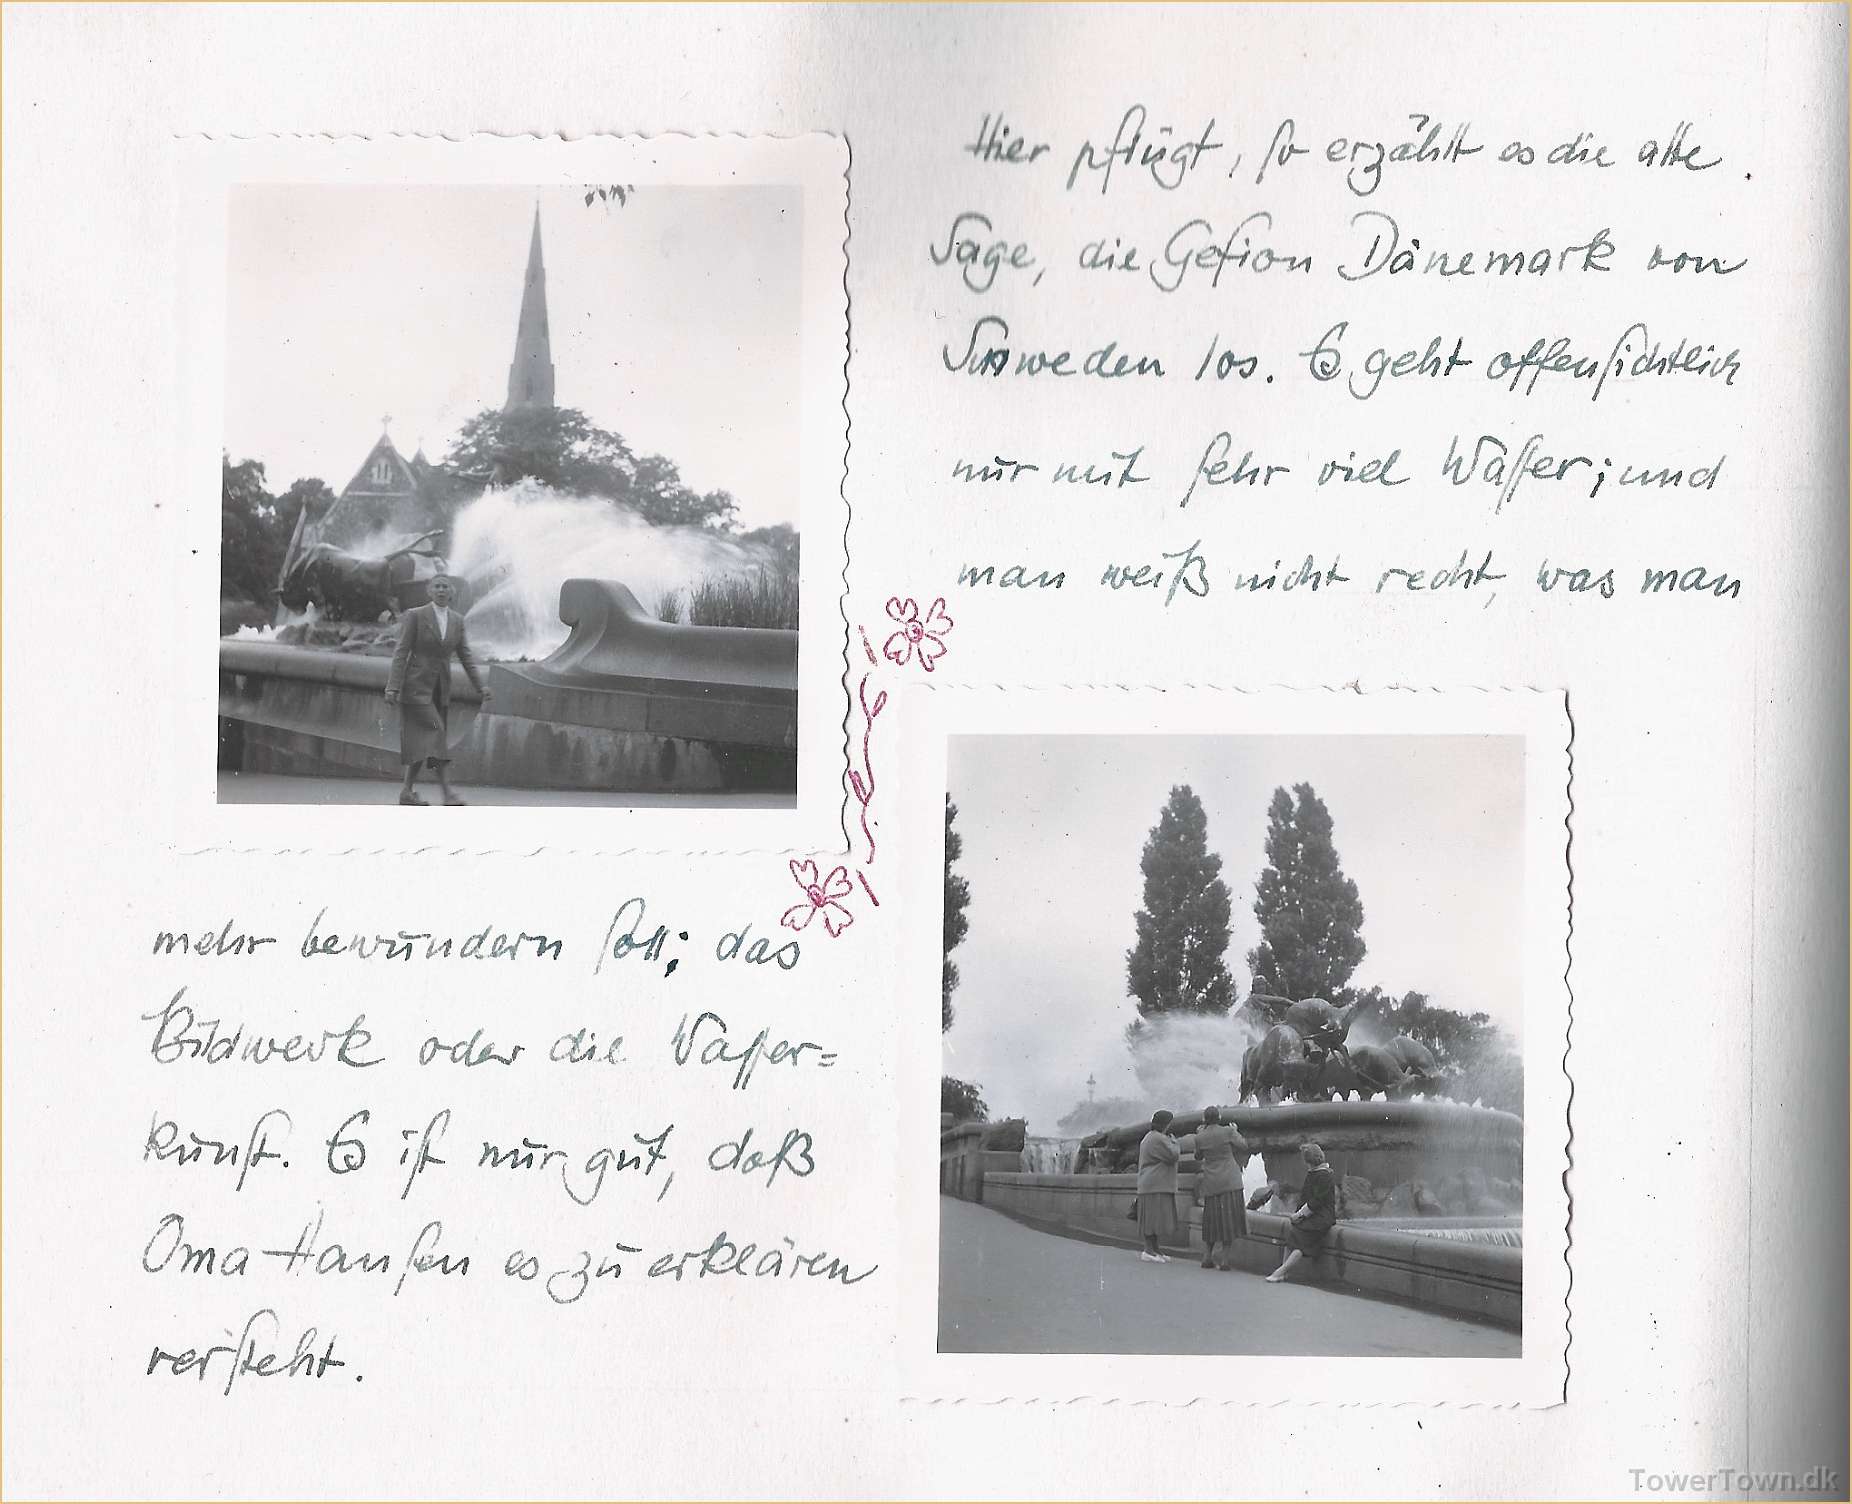 Hier pflügt, so erzählt es die alte
Sage, die Gefion Dänemark von
Schweden los. Es geht offensichtlich
nur mit sehr viel Wasser; und
man weiß nicht recht, was man
mehr bewundern soll; das
Bildwerk oder die Wasser=
kunst. Es ist nur gut, daß
Oma Hansen es zu erklären
versteht.
TowerTown.dk